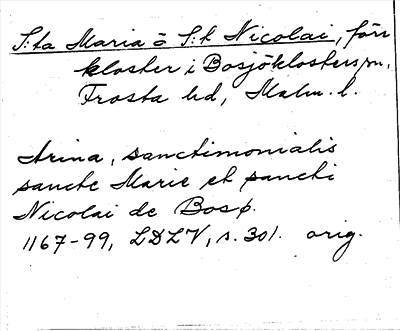 S:ta Maria o S:t Nicolai, förr
kloster i Bosjöklosters sn,
Frosta hd, Malm. l.
Arina, sanctimonialis
sancte Marie et sancti
Nicolai de Bosø.
1167-99, LDLV, s. 301. orig.